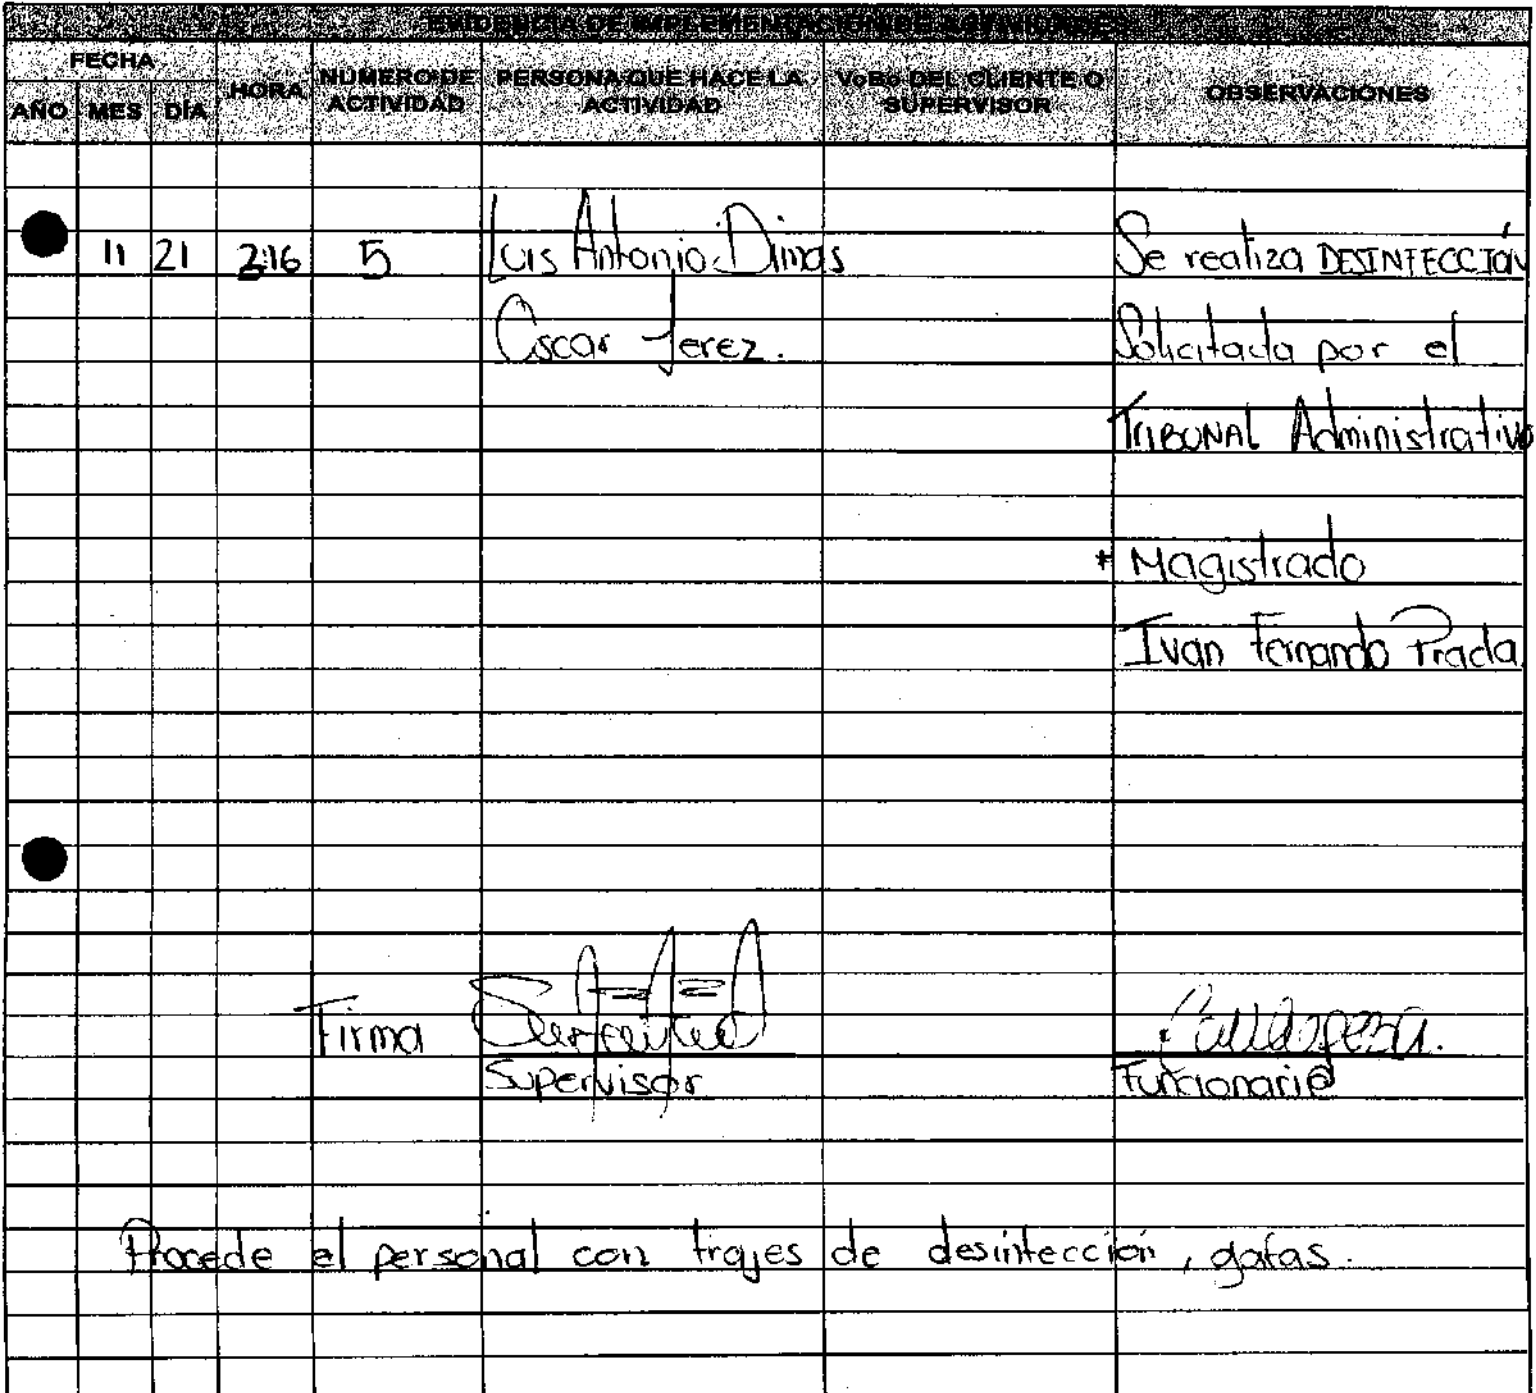 EVIDENCIA DE IMPLEMENTACIÓN DE ACTIVIDADES
FECHA
AÑO MES DÍA HORA NÚMERO DE ACTIVIDAD PERSONA QUE HACE LA ACTIVIDAD VoBo DEL CLIENTE O SUPERVISOR OBSERVACIONES
11 21 2:16 5 Luis Antonio Dimas Se realiza DESINFECCIÓN
Oscar Jerez. Solicitada por el
TRIBUNAL Administrativo
* Magistrado
Ivan Fernando Prada
Firma
Supervisor Funcionari@
Procede el personal con trajes de desinfección, gafas.